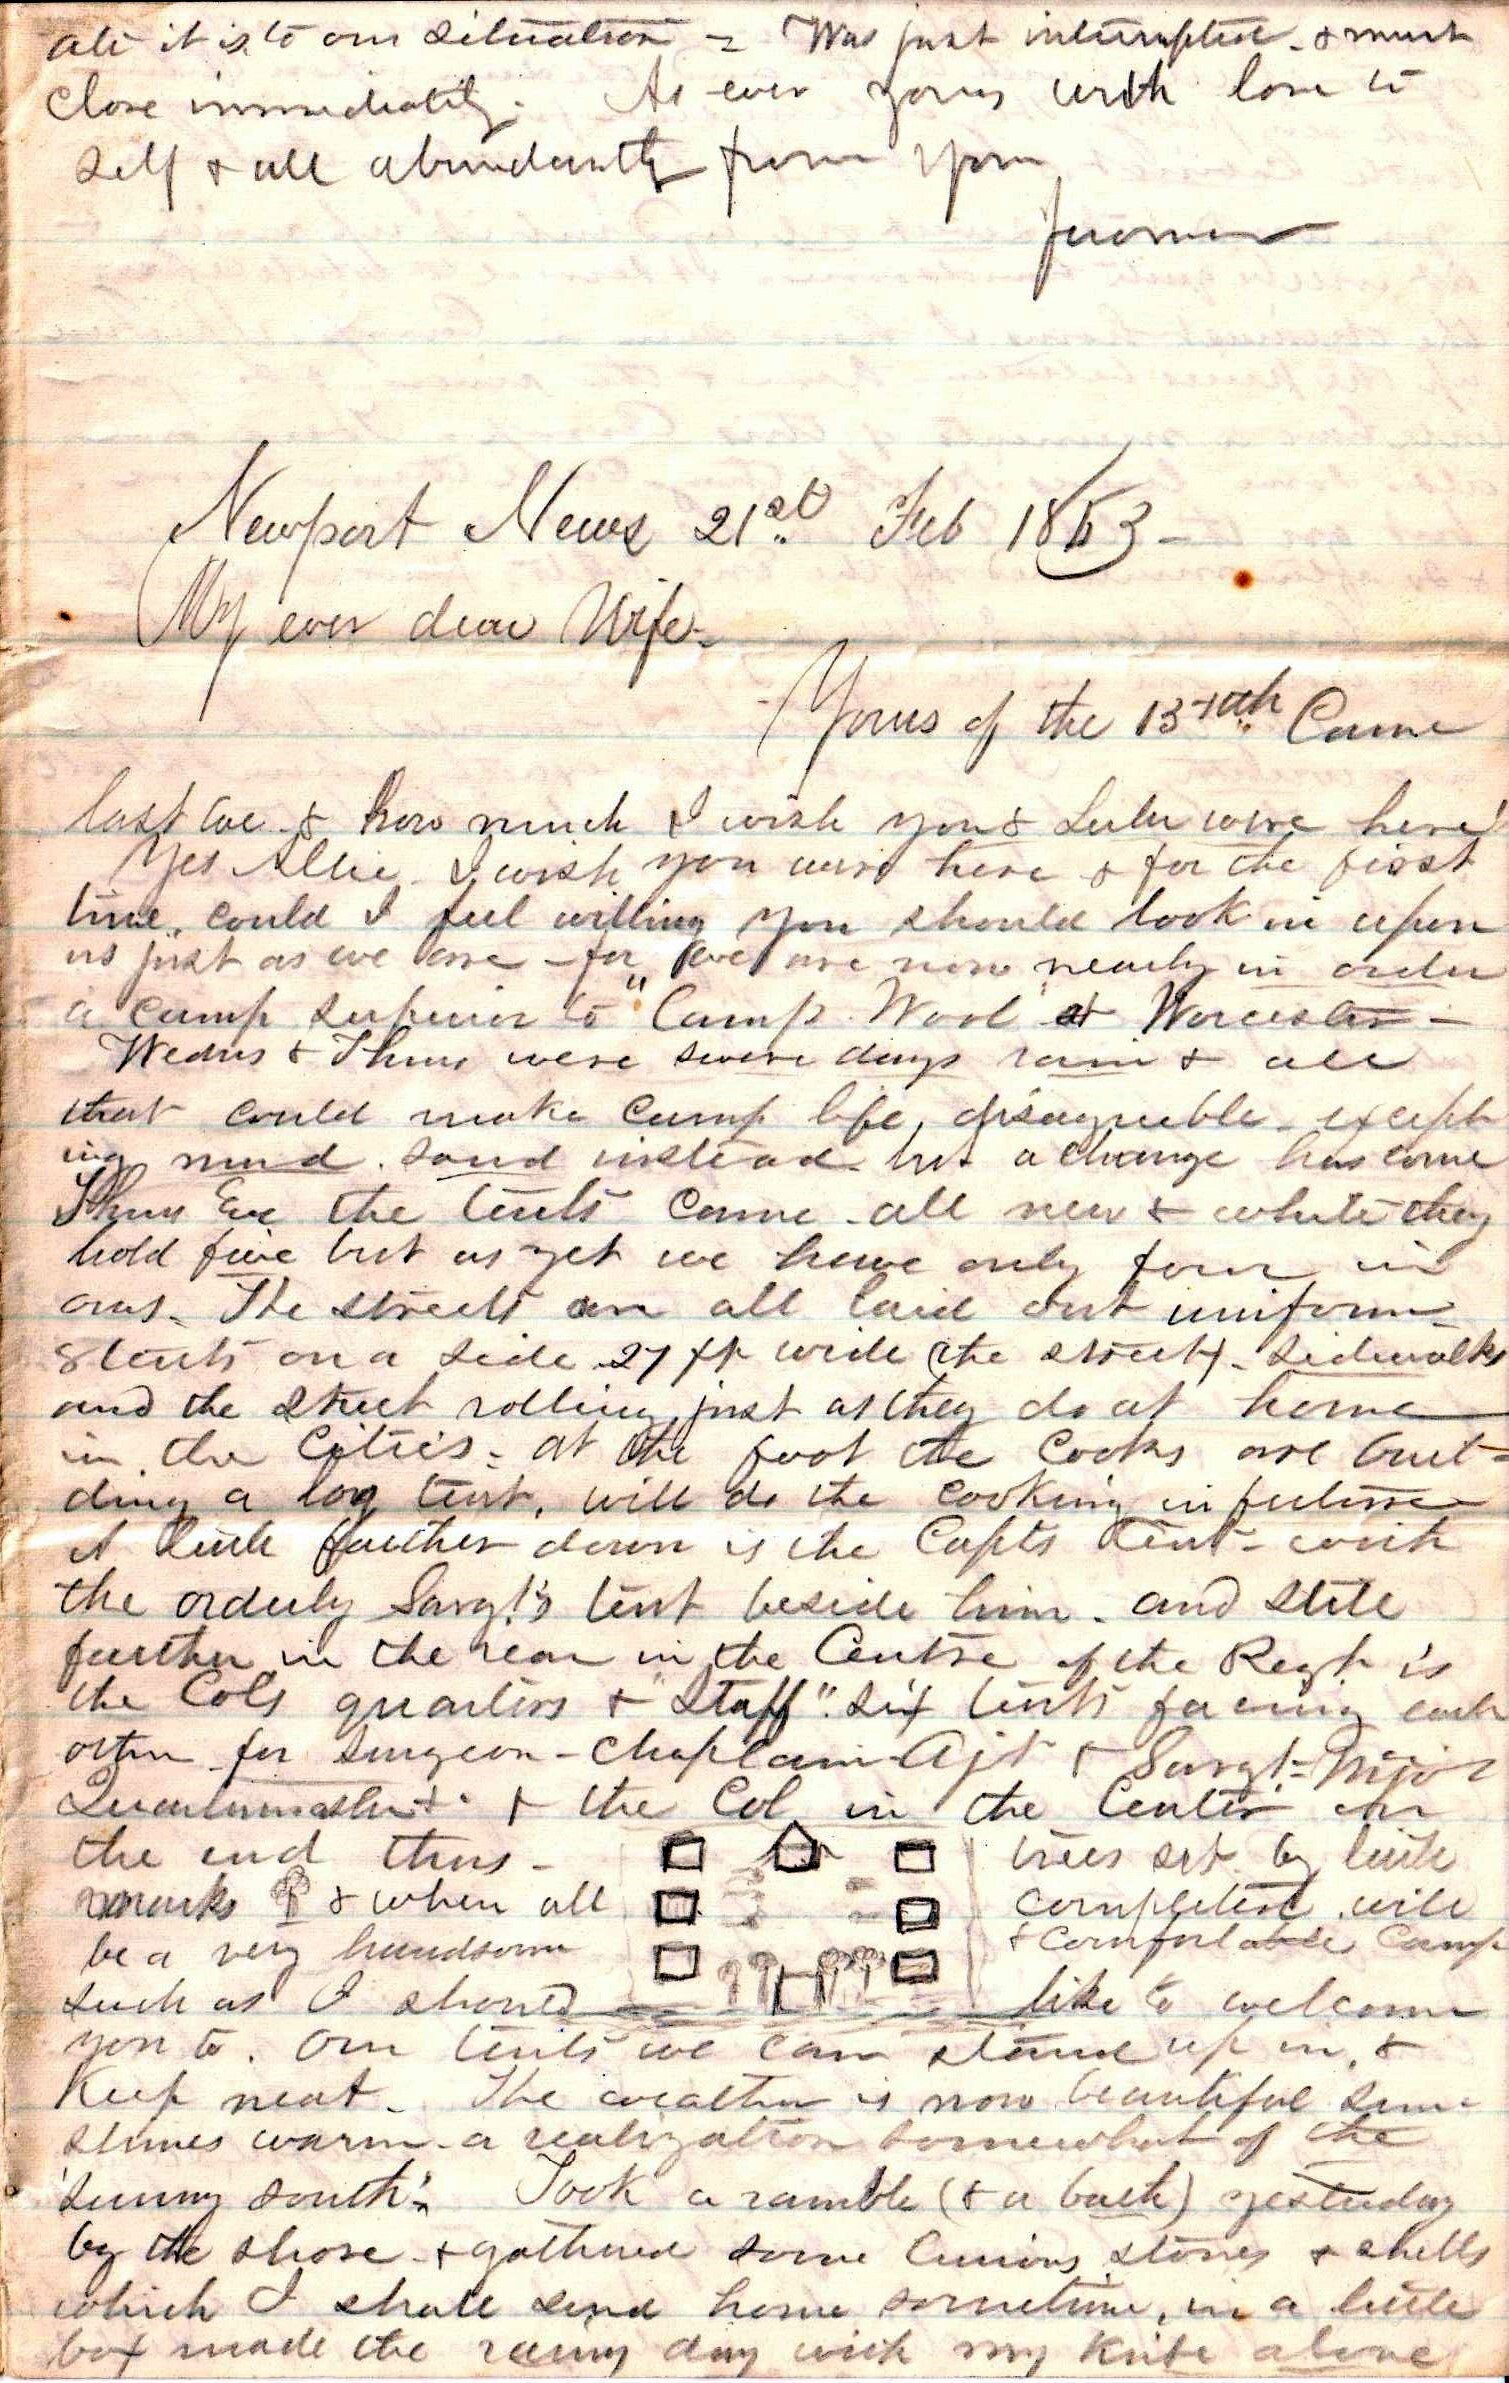 ate it is to our situation - Was just interrupted - & must
close immediately. As ever yours with love to
self & all abundantly from your
Jerome
Newport News 21st Feb 1863 -
My ever dear Wife -
Yours of the 13th Came
last eve - & how much I wish you & Lulu were here!
Yes Allie - I wish you were here & for the first
time, could I feel willing you should look in upon
us just as we are - for we are now nearly in order
a camp superior to "Camp Wool" at Worcester -
Wedns & Thurs were severe days rain & all
that could make camp life, disagreeable - except
ing mud. sand instead - but a change has come
Thurs Eve the tents came - all new & white they
hold five but as yet we have only four in
ours - The streets are all laid out uniform -
8 tents on a side 27 ft wide (the street) - sidewalks
and the street rolling, just as they do at home
in the cities - at the foot the Cooks are buil-
ding a log tent, will do the cooking in future
A little further down is the Capts tent - with
the orderly Sargt's tent beside him - and still
further in the rear in the Centre of the Regt is
the Cols quarters & "Staff" - six tents facing each
other for Surgeon - Chaplain - Ajt & Sargt - Major
Quartermaster & the Col in the Center on
the end thus - trees set by little
marks & when all completed will
be a very handsome & comfortable Camp
such as I should like to welcome
you to. Our tents we can stand up in, &
keep neat - The weather is now beautiful sun
shines warm - a realization somewhat of the
"sunny south" - Took a ramble (& a bath) yesterday
by the shore - & gathered some curious stones & shells
which I shall send home sometime, in a little
box made the rainy day with my knife alone